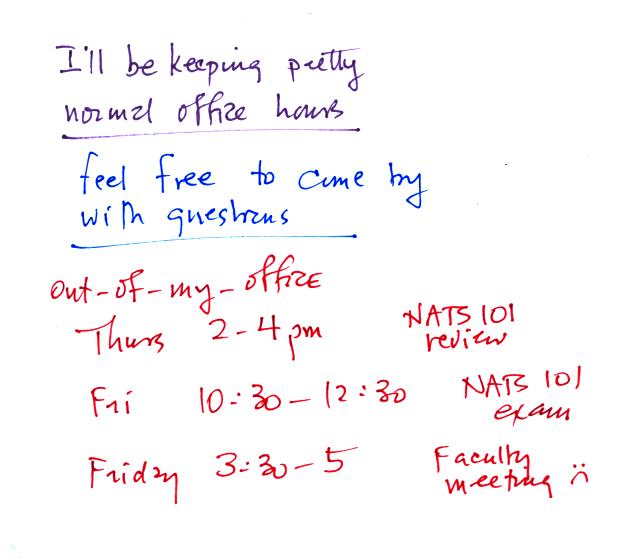 I'll be keeping pretty
normal office hours
feel free to come by
with questions
out-of-my-office
Thurs 2-4 pm NATS 101 review
Fri 10:30-12:30 NATS 101 exam
Friday 3:30-5 Faculty meeting :(